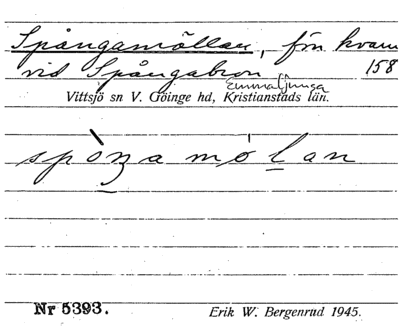 Spångamöllan, f.n kvarn
vid Spångabron 158
Emmaljunga
Vittsjö sn V. Göinge hd, Kristianstads län.
spòŋa mölan
Nr 5393. Erik W. Bergenrud 1945.